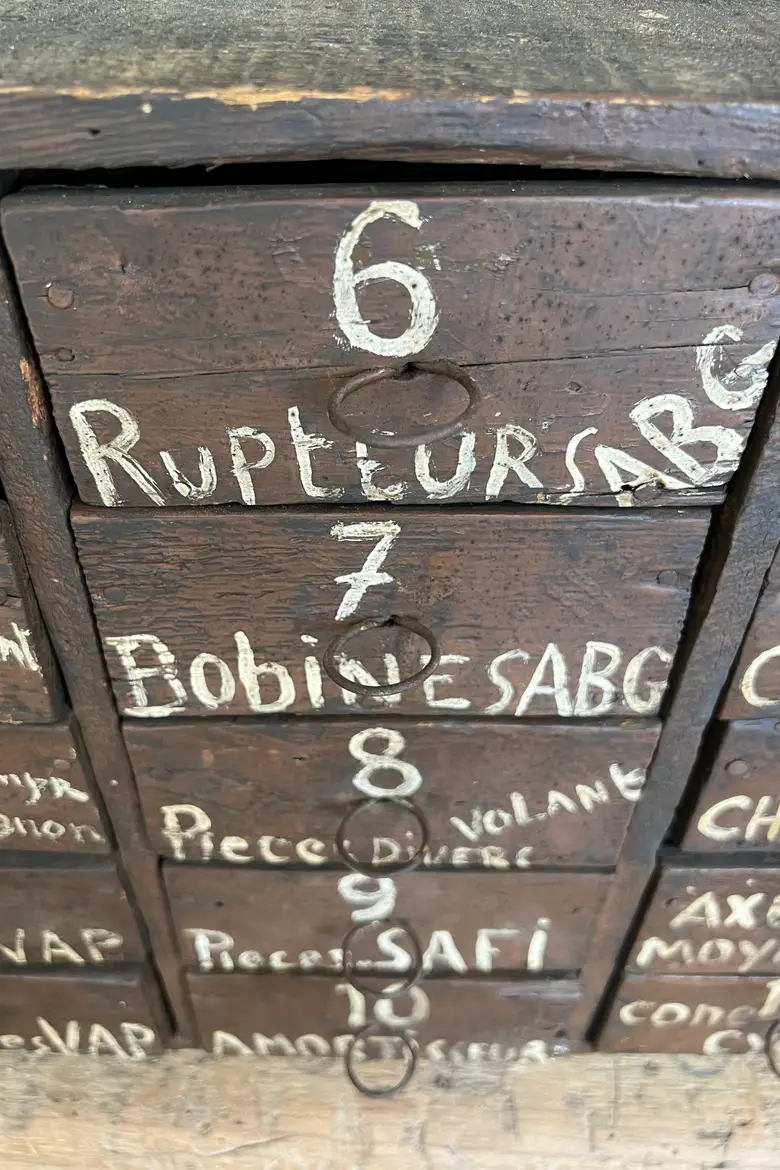 6
RUPtEURSABG
7
BobiNESABG
8
VOLANt
Pieces DiVERS
9
Pieces SAFi
10
AMORtiSSEUR
VAP
VAP
CH
AXE
MOY